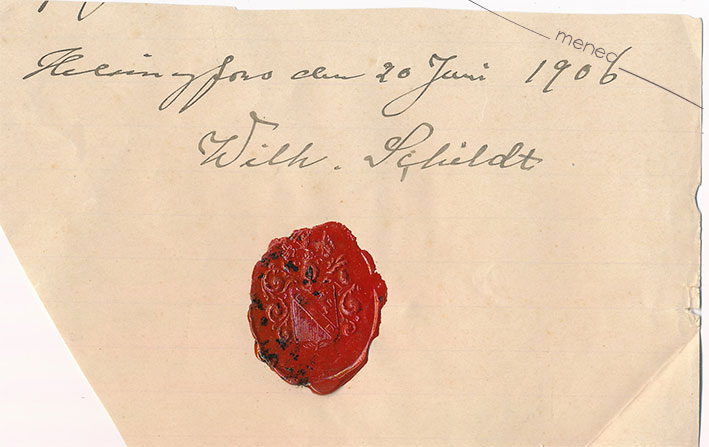 mened
Helsingfors den 20 Juni 1906
Wilh. Schildt